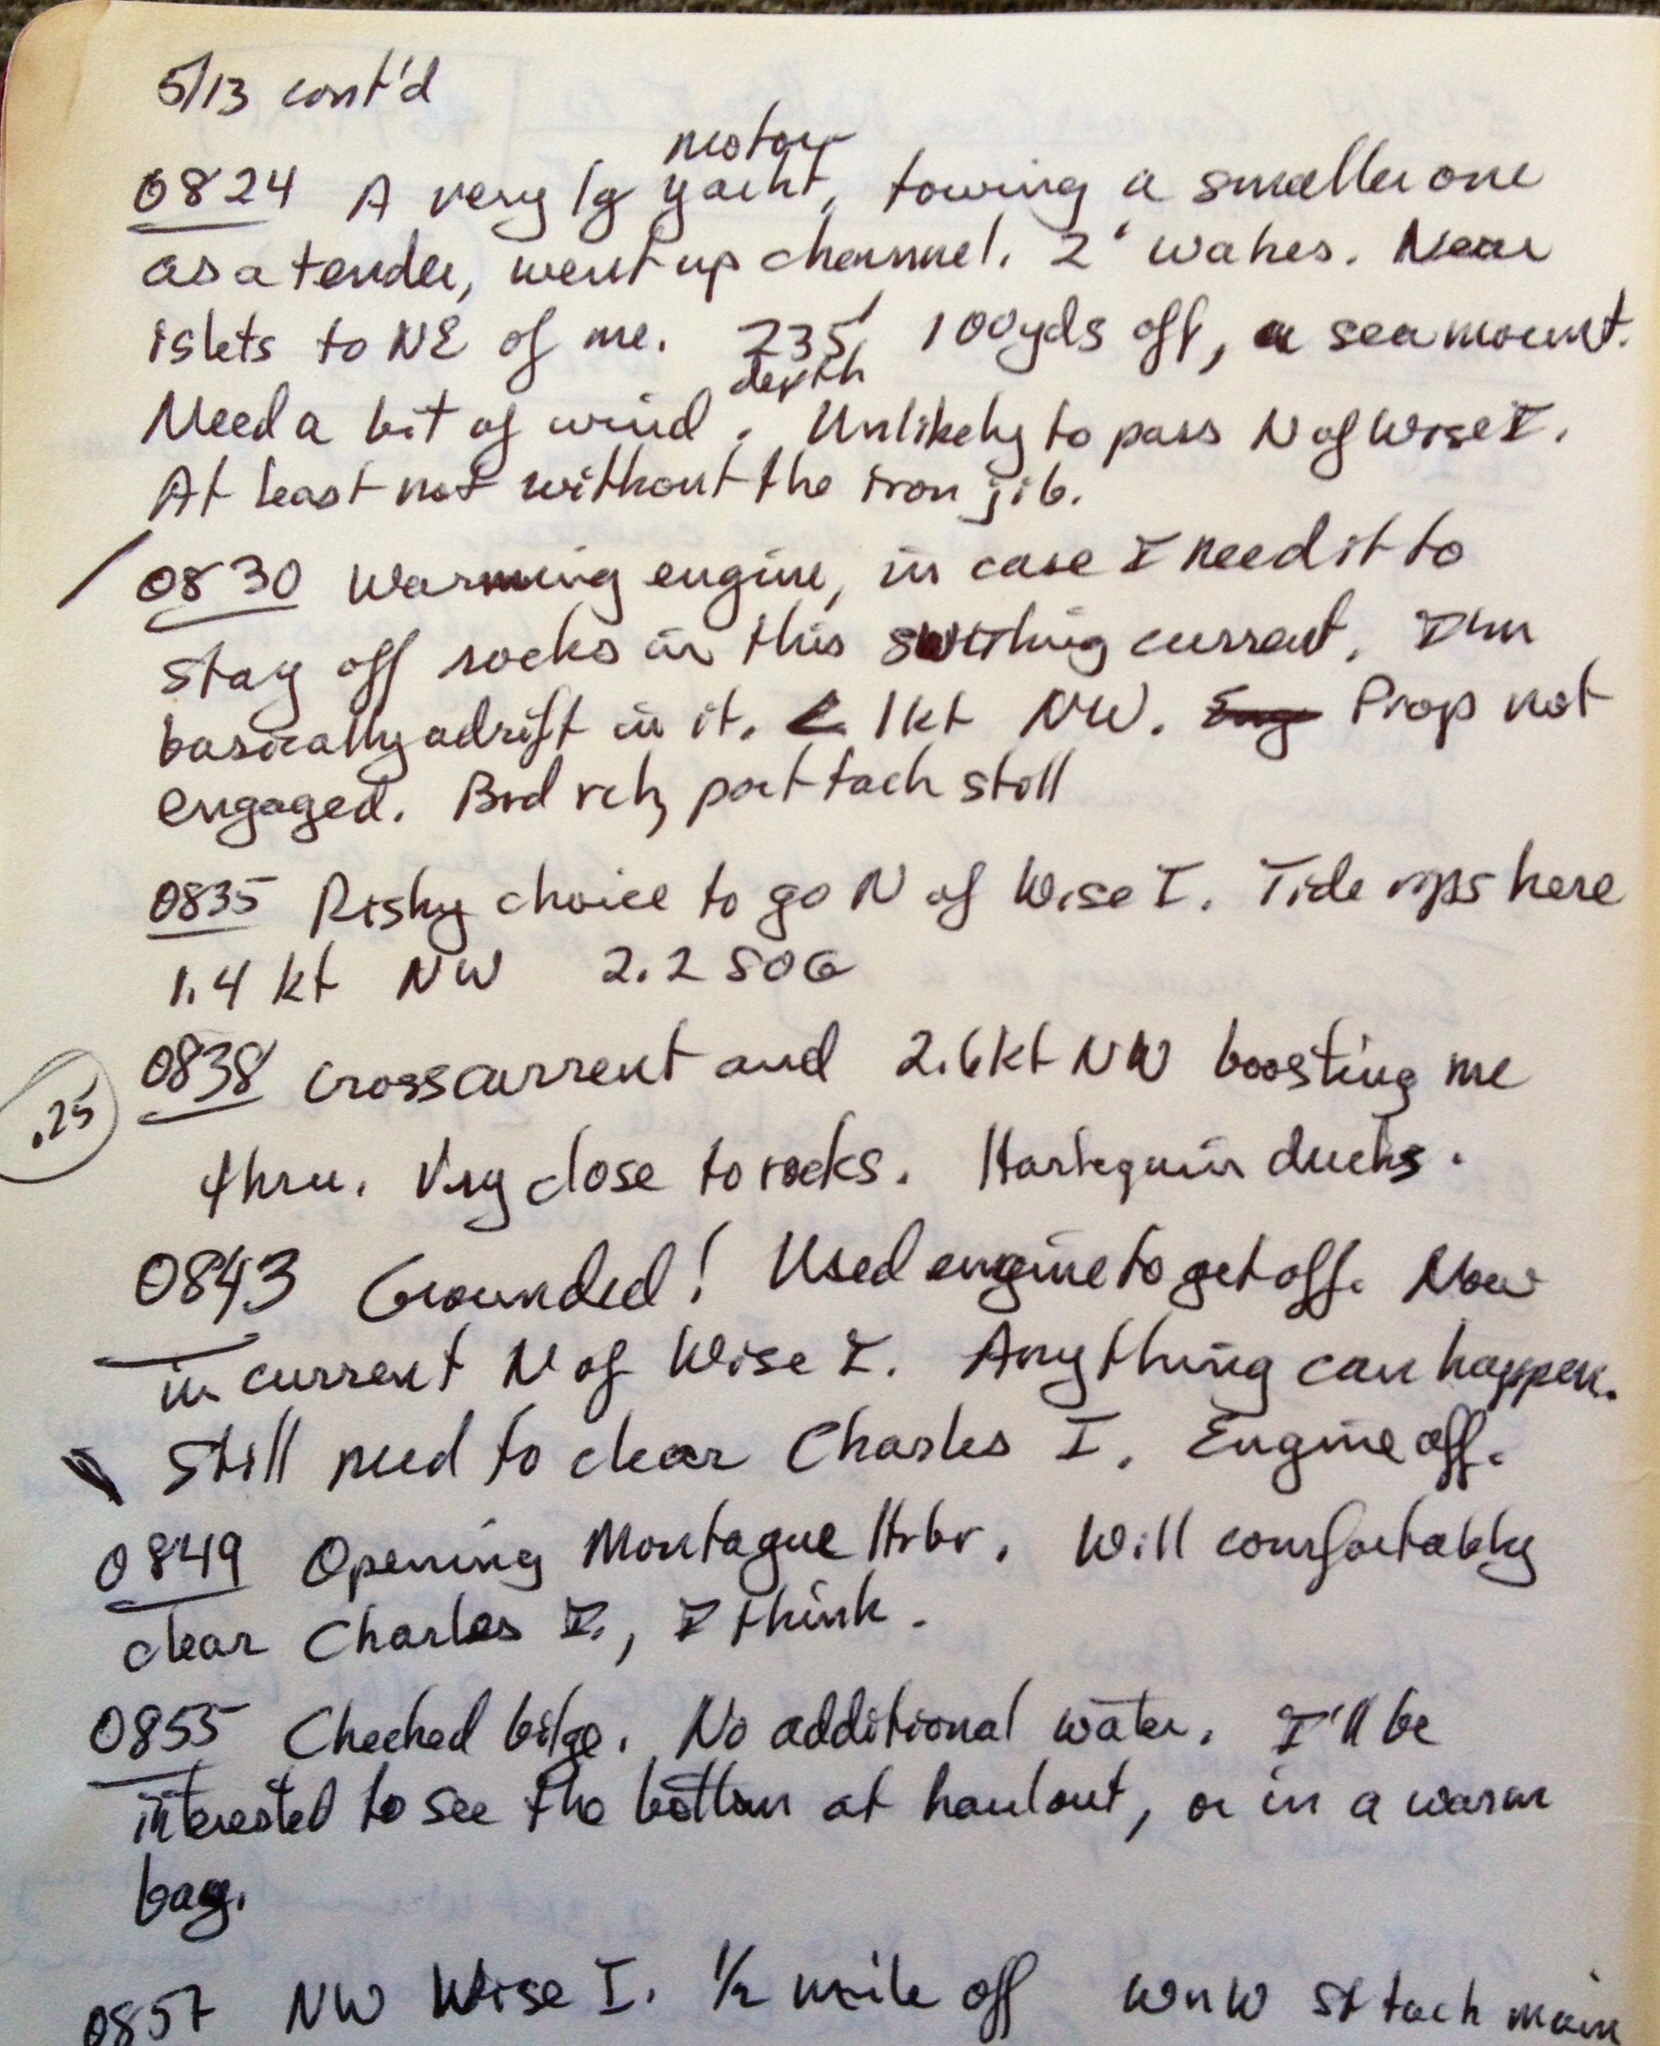 5/13 cont'd
motor
0824 A very lg yacht, towing a smaller one
as a tender, went up channel. 2' wakes. Near
islets to NE of me. 235' 100yds off, a seamount.
depth
Need a bit of wind. Unlikely to pass N of Wise I.
At least not without the iron jib.
0830 Warming engine, in case I need it to
stay off rocks in this swirling current. I'm
basically adrift in it. < 1kt NW. Eng Prop not
engaged. Brd rch, port tach still
0835 Risky choice to go N of Wise I. Tide rips here
1.4 kt NW 2.2 SOG
0838 Crosscurrent and 2.6kt NW boosting me
.25
thru. Very close to rocks. Harlequin ducks.
0843 Grounded! Used engine to get off. Now
in current N of Wise I. Anything can happen.
Still need to clear Charles I. Engine off.
0849 Opening Montague Hrbr. Will comfortably
clear Charles I., I think.
0855 Checked bilge. No additional water. I'll be
interested to see the bottom at haulout, or in a warm
bay.
0857 NW Wise I. 1/2 mile off WNW St tach main